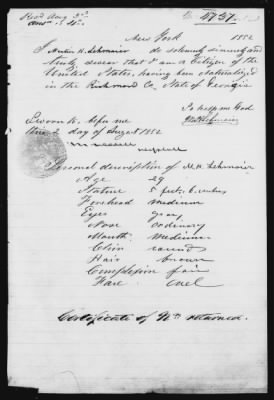 Recd Aug 3d
5757
New York 1852
I H. Lehmaier do solemnly sincerely and
truly declare that I am a Citizen of the
United States, having been Naturalized
in the Richmond Co, State of Georgia
So help me God
Sworn to, before me
this 2 day of August 1852
Personal description of M. H. Lehmaier
Age 29
Stature 5 feet, 6 inches
Forehead medium
Eyes gray
Nose ordinary
Mouth medium
Chin round
Hair brown
Complexion fair
Face oval
Certificate of Nn returned.